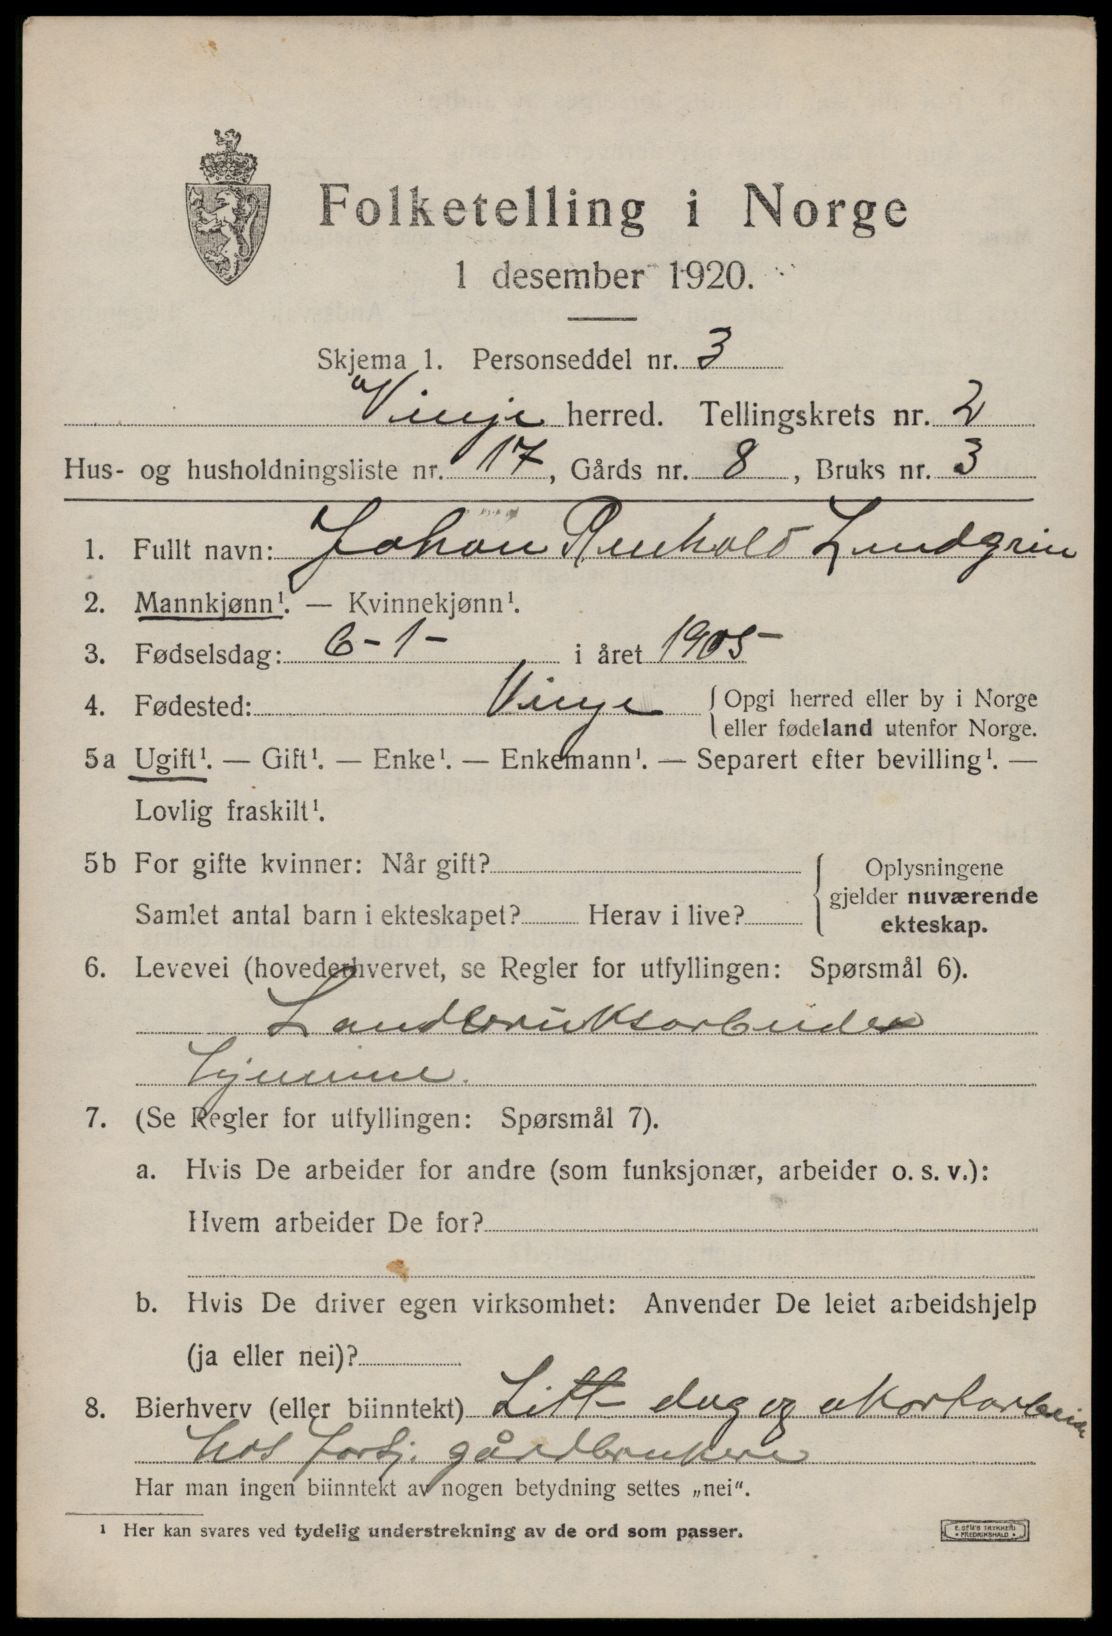 Folketelling i Norge
1 desember 1920.
Skjema 1. Personseddel nr. 3
Vinje herred. Tellingskrets nr. 2
Hus- og husholdningsliste nr. 17, Gårds nr. 8, Bruks nr. 3
1. Fullt navn: Johan Renhold Lundgrin
2. Mannkjønn¹. — Kvinnekjønn¹.
3. Fødselsdag: 6-1- i året 1905-
4. Fødested: Vinje { Opgi herred eller by i Norge
eller fødeland utenfor Norge.
5a Ugift¹. — Gift¹. — Enke¹. — Enkemann¹. — Separert efter bevilling¹. —
Lovlig fraskilt¹.
5b For gifte kvinner: Når gift? { Oplysningene
gjelder nuværende
Samlet antal barn i ekteskapet? Herav i live? ekteskap.
6. Levevei (hovederhvervet, se Regler for utfyllingen: Spørsmål 6).
Landbruksarbeider
hjemme.
7. (Se Regler for utfyllingen: Spørsmål 7).
a. Hvis De arbeider for andre (som funksjonær, arbeider o. s. v.):
Hvem arbeider De for?
b. Hvis De driver egen virksomhet: Anvender De leiet arbeidshjelp
(ja eller nei)?
8. Bierhverv (eller biinntekt) Litt dag og akortarbeide
hos forskj. gårdbrukere
Har man ingen biinntekt av nogen betydning settes „nei“.
¹ Her kan svares ved tydelig understrekning av de ord som passer.
E. SEMS TRYKKERI
• FREDRIKSHALD •